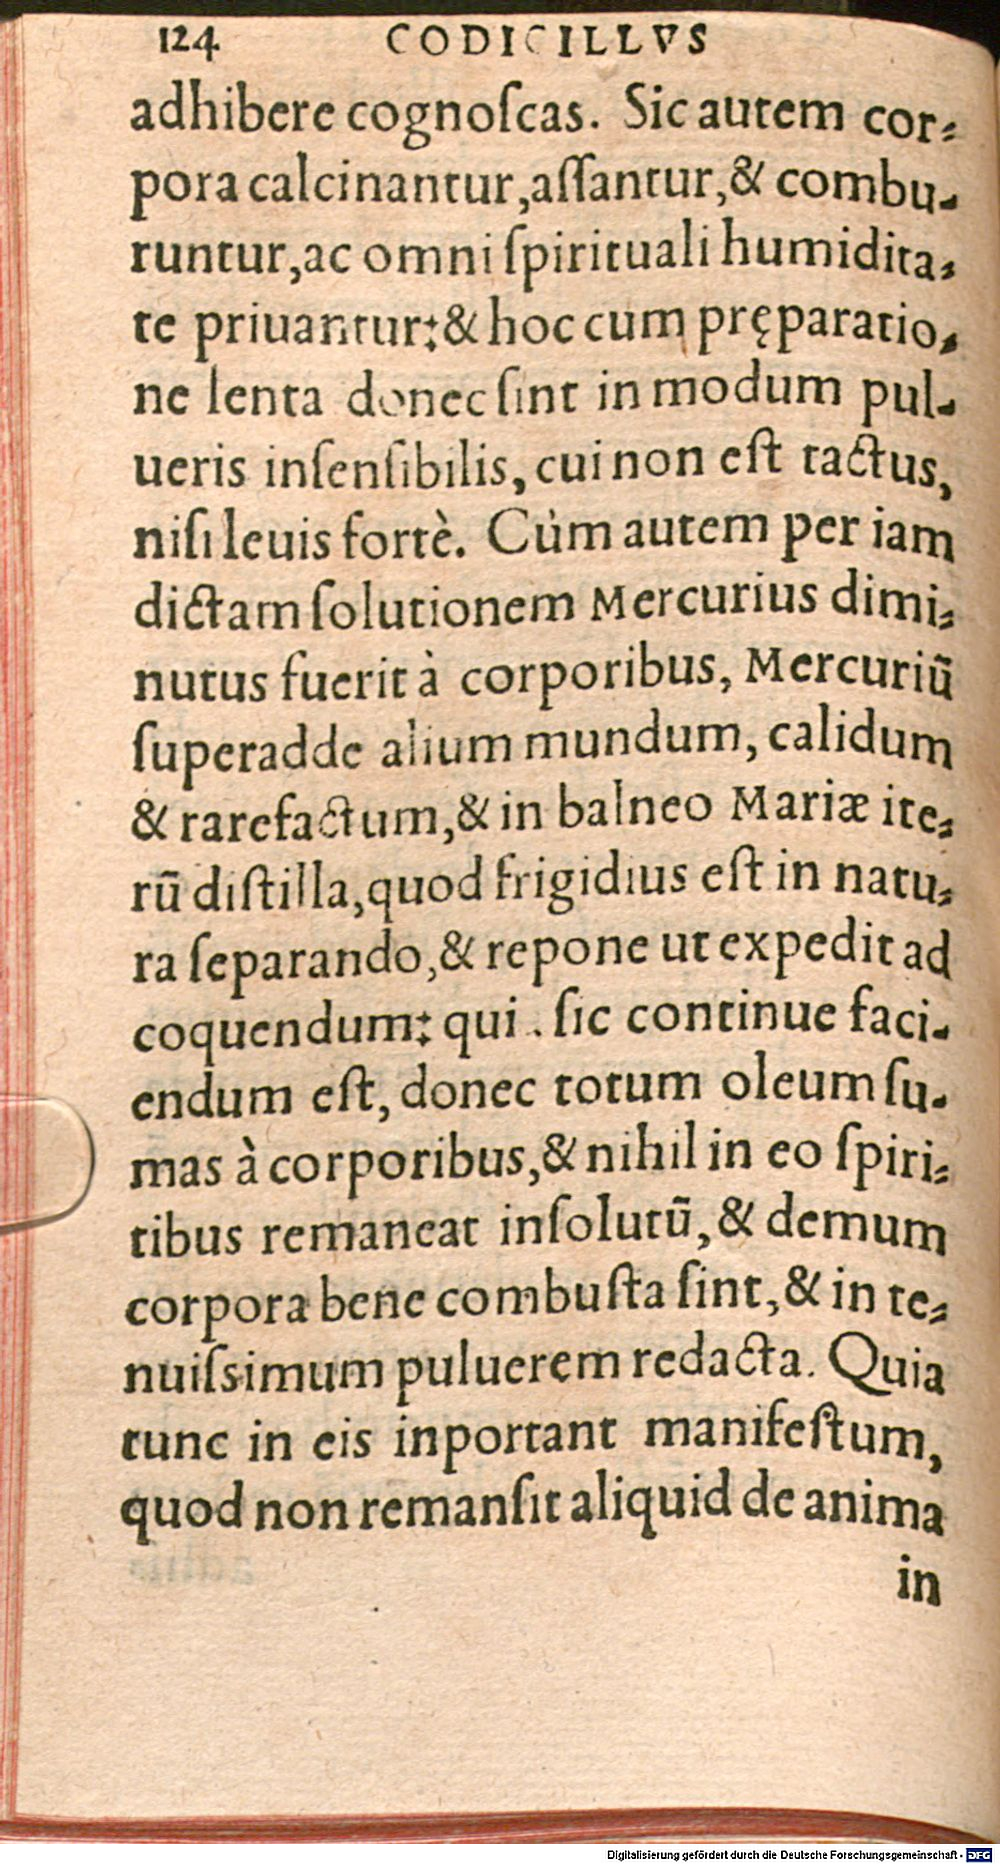 124 CODICILLVS
adhibere cognoſcas. Sic autem cor-
pora calcinantur, aſſantur, & combu-
runtur, ac omni ſpirituali humidita-
te priuantur: & hoc cum pręparatio-
ne lenta donec ſint in modum pul-
ueris inſenſibilis, cui non eſt tactus,
niſi leuis fortè. Cùm autem per iam
dictam ſolutionem Mercurius dimi-
nutus fuerit à corporibus, Mercuriũ
ſuperadde alium mundum, calidum
& rarefactum, & in balneo Mariæ ite-
rũ diſtilla, quod frigidius eſt in natu-
ra ſeparando, & repone ut expedit ad
coquendum: qui . ſic continue faci-
endum eſt, donec totum oleum ſu-
mas à corporibus, & nihil in eo ſpiri-
tibus remaneat inſolutũ, & demum
corpora bene combuſta ſint, & in te-
nuiſsimum puluerem redacta. Quia
tunc in eis inportant manifeſtum,
quod non remanſit aliquid de anima
in
Digitalisierung gefördert durch die Deutsche Forschungsgemeinschaft - DFG